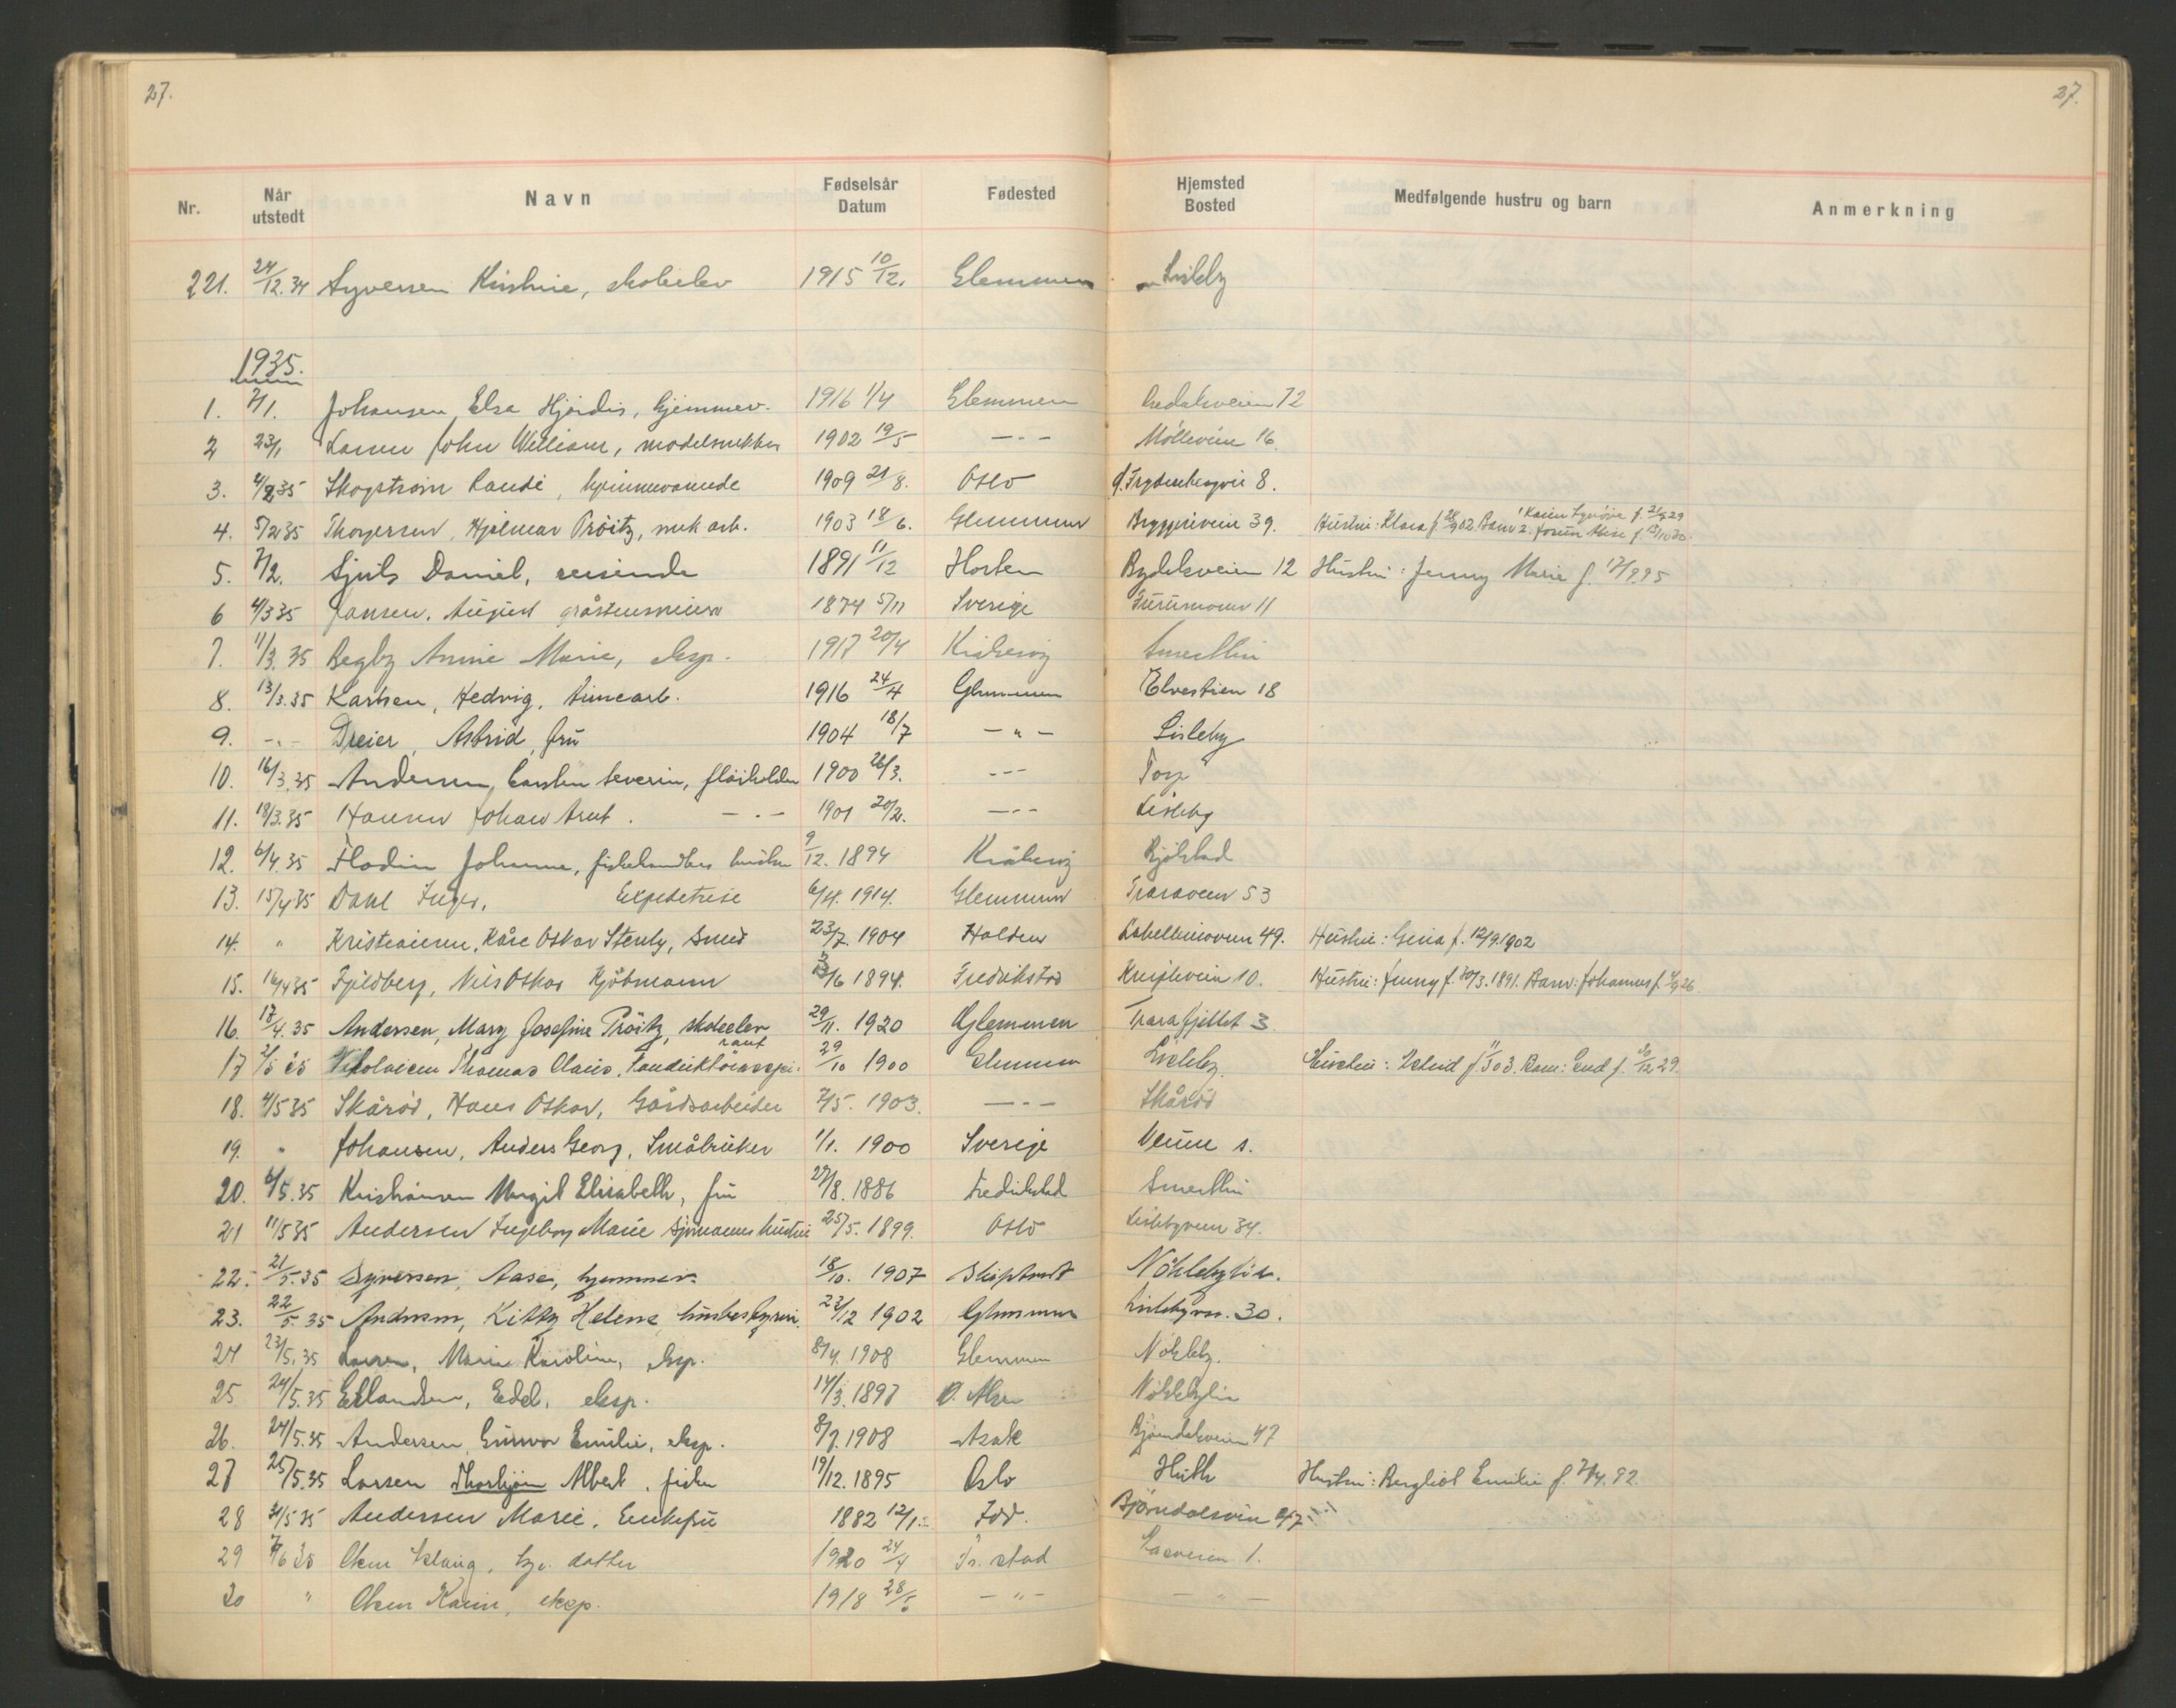 27.
27.
Nr. Når utstedt Navn Fødselsår Datum Fødested Hjemsted Bosted Medfølgende hustru og barn Anmerkning
221. 24/12.34 Syversen Kirstine, skoleelev 1915 10/12. Glemmen Lisleby
1935.
1. 7/1. Johansen, Else Hjördis, hjemmev. 1916 1/4 Glemmen 72
2 23/1 Larsen John William, modelsnekker 1902 19/5 — - — Mölleveien 16.
3. 4/2 35 Skogström Randi, hjemmeværende 1909 21/8. Oslo 8.
4. 5/2 35 Thorgersen, Hjalmar Pröitz, mek arb. 1903 18/6. Glemmen Bryggeriveien 39. Hustru: Klara f. 28/9 02. Barn 1 Karin Synöve f. 2. Jorun f.
5. 7/2. Daniel, reisende 1891 11/12 Horten Bydalsveien 12 Hustru: Jenny Marie f. 17/9 95
6 4/3 35 Jansen, August 1874 5/11 Sverige Furumoen 11
7. 11/3. 35 Begby Annie Marie, eksp. 1917 20/4 Kråkeröy Smertllin
8. 13/3.35 Karlsen, Hedvig, 1916 24/4 Glemmen Elvestien 18
9. -"- Dreier, Astrid, frü 1904 18/7 — " — Lisleby
10. 16/3.35 Andersen, Carsten Severin, 1900 26/3. - - - Torp
11. 18/3.35 Hansen Johan Arnt. — - — 1901 20/2. — - — Lisleby
12. 6/4.35 Flodin Johanne, fiskehandlers hustru 9/12. 1894 Kråkeröy Rjölstad
13. 15/4 35 Dahl Inger, Expeditrise 6/4. 1914. Glemmen Traraveien 53
14. " Kristiansen, Kåre Oskar Stenby, Smed 23/7. 1904 Halden 49. Hustru: Gina f. 12/9.1902
15. 16/4 35 Fjeldberg, Nils Oskar Kjöbmann 3/6 1894. Fredrikstad 10. Hustru: Jenny f. 30/3.1891. Barn: Johannes f.
16. 17/4.35 Andersen, Mary Josefine Pröitz, skoleelev 29/11. 1920 Glemmen Trarafjellet 3
17 Nikolaisen Thomas Claus, 29/10 1900 Glemmen Lisleby Hustru: Astrid f. Barn: f. 12 29.
18. 4/5 35 Skåröd, Hans Oskar, Gårdsarbeider 7/5. 1903. — - — Skåröd
19. " Johansen, Anders Georg, Småbruker 1/1. 1900 Sverige Veum s.
20. 6/5.35 Kristiansen Margit Elisabeth, frü 27/8. 1886 Fredrikstad Smertllin
21 11/5 35 Andersen Ingeborg Marie Sjömanns hustru 25/5. 1899. Oslo Lislebyveien 34.
22. 21/5.35 Syversen, Aase, hjemmev. 18/10. 1907 Skiptvedt Nöklebylia.
23. 22/5.35 Andersen, Kitty Helene husbestyrin. 23/12 1902 Glemmen Lislebyvn. 30.
24 23/5.35 Larsen, Marie Karoline, eksp. 8/4. 1908 Glemmen Nökleby.
25 24/5.35 Erlandsen, Edel, eksp. 14/3. 1897 Nöklebylia
26. 24/5.35 Andersen, Gunvor Emilie, eksp. 8/7. 1908 Asak Bjørndalsveien 47
27 25/5.35 Larsen Thorbjörn Albert, fisker 19/12. 1895 Oslo Huth Hustru: Bergliot Emilie f. 92.
28 31/5 35 Andersen Marie, Enkefrü 1882 12/1. Idd. Björndalsveien 47
29 Olsen 1920 24/4 Fr. stad 1.
30 " Olsen Karin, eksp. 1918 28/5 — " — — " —